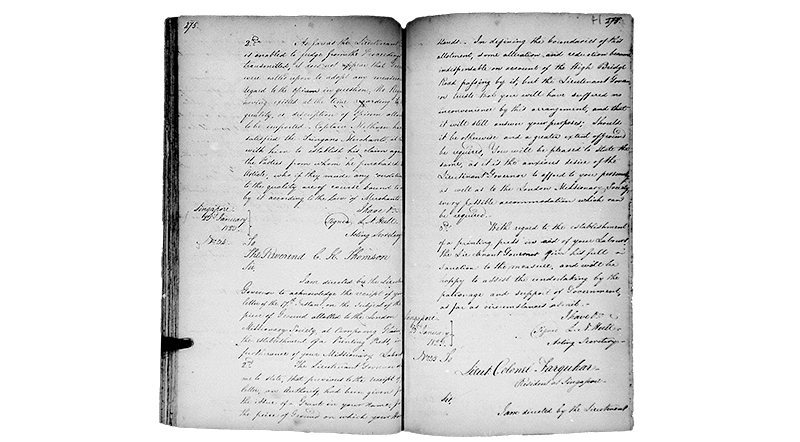 275.
2d. As far as the Lieutenant
is enabled to judge from the Proceedings
transmitted, it does not appear that
were called upon to adopt any measures
regard to the Opium in question, the
having existed at the time regarding
quality, or description of Opium
to be imported. Captain Methven
satisfied the Tringanu Merchants
with him to establish his claim
the Parties from whom he purchased
Article, who if they made any condition
to the quality are of course bound to
by it according to the Law of Merchants.
I have &c
Signed L. N. Hull
Acting Secretary
Singapore
January
1823
No. 22. To
The Reverend C. H. Thomson
Sir,
I am directed by the
Governor to acknowledge the receipt of your
letter of the 17th Instant, on the subject of the
piece of Ground allotted to the London
Missionary Society, at
the establishment of a Printing Press, in
furtherance of your Missionary
2d. The Lieutenant Governor
me to state, that previous to the receipt of
letter, an Authority had been given for
the Issue of a Grant in your Name, for
the piece of Ground on which your
hands. In defining the boundaries of this
allotment, some alteration and reduction became
indispensable on account of the High Bridge
Road passing by it, but the Lieutenant
trusts that you will have suffered no
inconvenience by this arrangement, and that
it will still answer your purposes; Should
it be otherwise and a greater extent of ground
be required, You will be pleased to state the
same, as it is the anxious desire of the
Lieutenant Governor to afford to you personally
as well as to the London Missionary Society
every possible accommodation which can
be required.
3d. With regard to the establishment
of a printing press in aid of your Labours
the Lieutenant Governor gives his full
Sanction to the measure, and will be
happy to assist the undertaking by the
patronage and support of Government,
as far as circumstances admit.
I have &c
Signed L. N. Hull
Acting Secretary
Singapore
January
1823
No. 23 To
Lieut Colonel Farquhar
Resident of Singapore
Sir,
I am directed by the Lieutenant